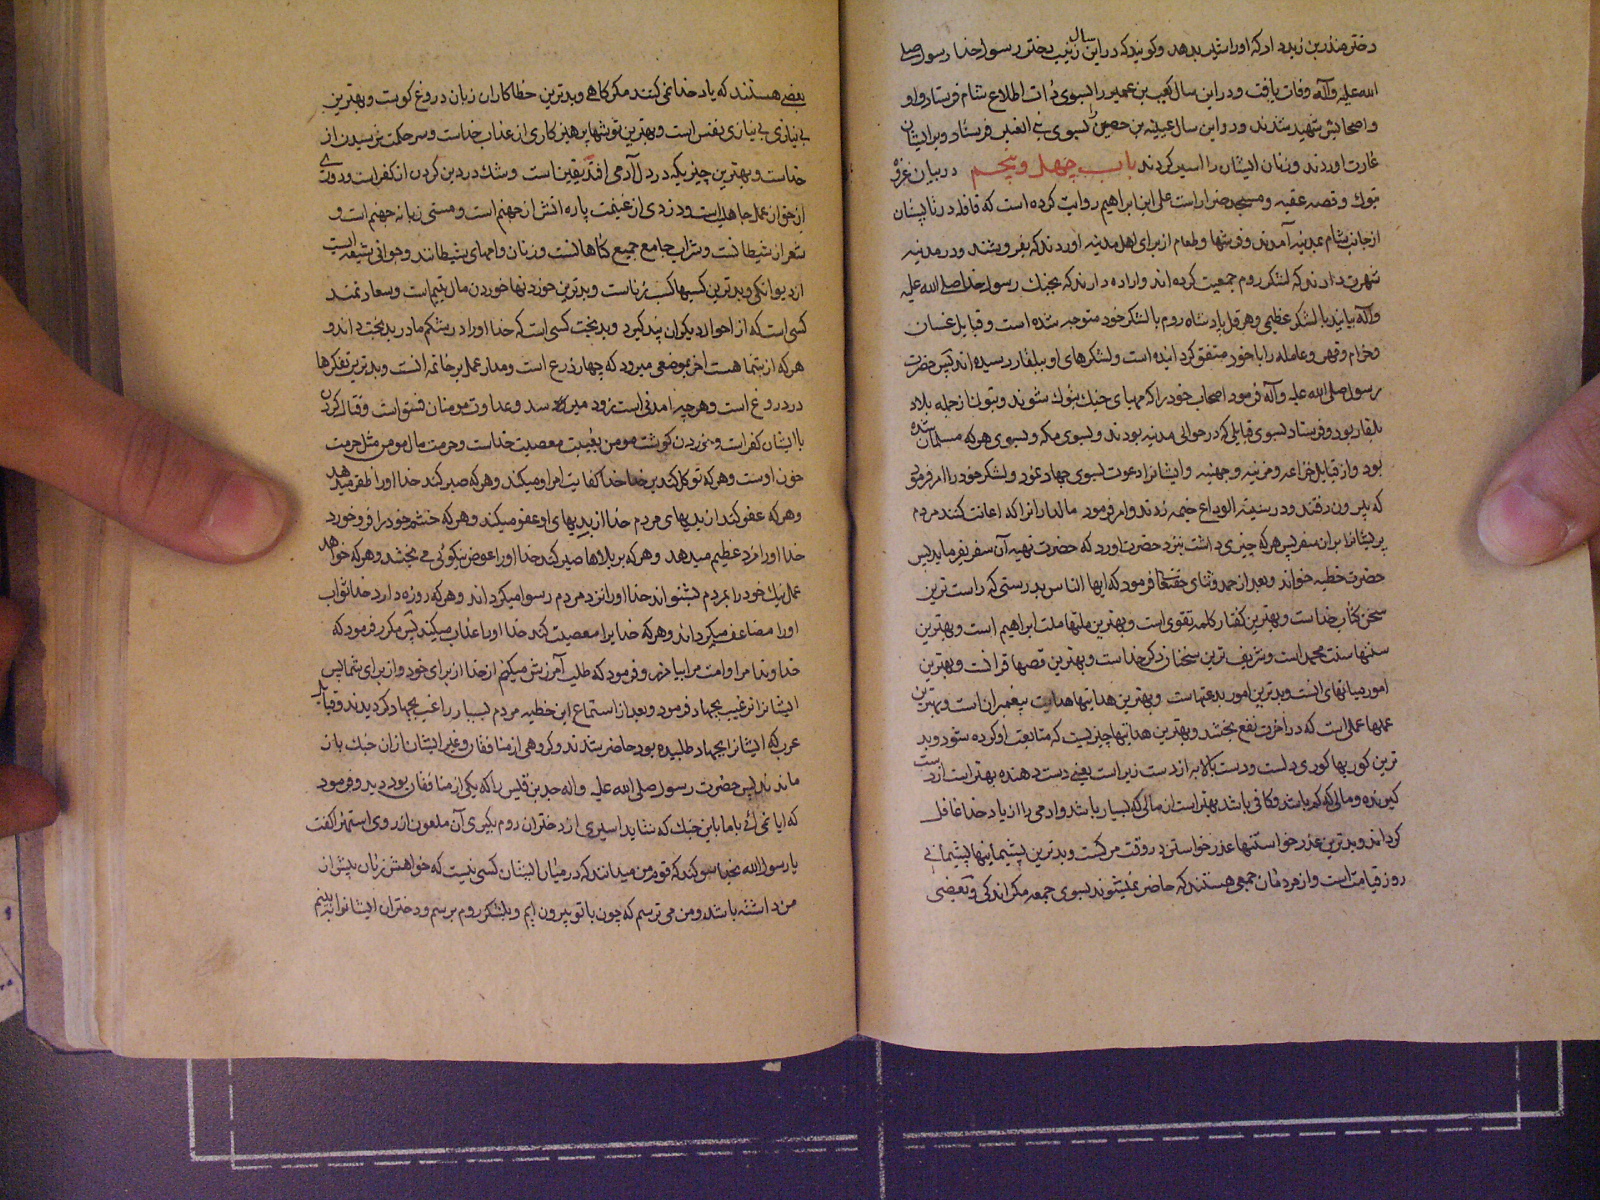 دختر منذر بن زید داد که او را شیر بدهد و گویند که در این سال زینب دختر رسول خدا رسول صلی
الله علیه وآله وفات یافت و در این سال کعب بن عمیر را بسوی ذات اطلاع شام فرستاد و او
و اصحابش شهید شدند و در این سال عیینه بن حصین را بسوی بنی العنبر فرستاد و بر ایشان
غارت اوردند و زنان ایشان را اسیر کردند باب چهل و پنجم در بیان غزوه
تبوک و قصه عقبه و مسجد ضرار است علی ابن ابراهیم روایت کرده است که قافله در تابستان
از جانب شام بمدینه آمدند و فرشها و طعام از برای اهل مدینه اوردند که بفروشند و در مدینه
شهرت دادند که لشکر روم جمعیت کرده اند و اراده دارند که بجنک رسول خدا صلی الله علیه
وآله بیایند با لشکر عظیمی و هرقل پادشاه روم با لشکر خود متوجه شده است و قبایل غسان
و خزام و فهر و عامله را با خود متفق گردانیده است و لشکرهای او ببلقا رسیده اند پس حضرت
رسول صلی الله علیه وآله فرمود اصحاب خود را که مهیای جنک تبوک شوند و تبوک از جمله بلاد
بلقا بود و فرستاد بسوی قبایلی که در حوالی مدینه بودند و بسوی مکه و بسوی هر که مسلمان شده
بود و از قبایل خزاعه و مزینه و جهینه و ایشانرا دعوت بسوی جهاد نمود و لشکر خود را امر فرمود
که بیرون رفتند و در ثنیة الوداع خیمه زدند و امر فرمود مالدارانرا که اعانت کنند مردم
پریشانرا بران سفر پس هر که چیزی داشت بنزد حضرت اورد که حضرت تهیه آن سفر بفرماید پس
حضرت خطبه خواند و بعد از حمد و ثنای حقتعالی فرمود که ایها الناس بدرستی که راست ترین
سخن کتاب خداست و بهترین گفتار کلمه تقوی است و بهترین ملتها ملت ابراهیم است و بهترین
سنتها سنت محمد است و شریف ترین سخنان ذکر خداست و بهترین قصها قرانست و بهترین
امور میانهای انست و بدترین امور بدعتهاست و بهترین هدایتها هدایت پیغمبران است و بهترین
عملها عملی است که در آخرت نفع بخشد و بهترین هدایتها چیزیست که متابعت او کرده شود و بد
ترین کوریها کوری دلست و دست بالا به از دست زیر است یعنی دست دهنده بهتر است از دست
گیرنده و مالی که کم باشد و کافی باشد بهتر است از مالی که بسیار باشد و ادمی را از یاد خدا غافل
گرداند و بدترین عذر خواستنها عذر خواستن در وقت مرگست و بدترین پشیمانیها پشیمانی
روز قیامت است و از مردمان جمعی هستند که حاضر نمیشوند بسوی جمعه مگر اندکی و بعضی
بعضی هستند که یاد خدا نمی کنند مگر گاهی و بدترین خطاکاران زبان دروغ گوست و بهترین
بی نیازی بی نیازی نفس است و بهترین توشها پرهیزکاری از عذاب خداست و سر حکمت ترسیدن از
خداست و بهترین چیزیکه در دل آدمی افتد یقین است و شک در دین کردن از کفر است و دوری
از حق از عمل جاهلیت است و دزدی از غنیمت پاره اتش از جهنم است و مستی زبانه جهنم است و
شعر از شیطانست و شراب جامع جمیع گناهانست و زنان دامهای شیطانند و جوانی شعبه ایست
از دیوانگی و بدترین کسبها کسب رباست و بدترین خوردنها خوردن مال یتیم است و سعادتمند
کسی است که از احوال دیگران پند گیرد و بدبخت کسی است که خدا او را در شکم مادر بدبخت داند و
هر که از شما هست اخر بموضعی میرود که چهار ذرع است و مدار عمل بر خاتمه انست و بدترین تفکرها
در دروغ است و هر چه امدنی است بزودی میرسد و عداوت مومنان فسق است و قتال کردن
با ایشان کفر است و خوردن گوشت مومن بغیبت معصیت خداست و حرمت مال مومن مثل حرمت
خون اوست و هر که توکل کند بر خدا خدا کفایت امر او میکند و هر که صبر کند خدا او را ظفر میدهد
و هر که عفو کند از بدیهای مردم خدا از بدیهای او عفو میکند و هر که خشم خود را فرو خورد
خدا او را مزد عظیم میدهد و هر که بر بلاها صبر کند خدا او را عوض نیکوئی می بخشد و هر که خواهد
عمل نیک خود را بمردم بشنواند خدا او را نزد مردم رسوا میگرداند و هر که روزه دارد خدا ثواب
او را مضاعف میگرداند و هر که خدا را معصیت کند خدا او را عذاب میکند پس مکرر فرمود که
خداوندا مرا و امت مرا بیامرز و فرمود که طلب آمرزش میکنم از خدا از برای خود و از برای شما پس
ایشانرا ترغیب بجهاد فرمود و بعد از استماع این خطبه مردم بسیار راغب بجهاد گردیدند و قبایل
عرب که ایشانرا بجهاد طلبیده بود حاضر شدند و گروهی از منافقان و غیر ایشان از ان جنک باز
ماندند پس حضرت رسول صلی الله علیه واله جد بن قیس را که یکی از منافقان بود دید و فرمود
که ایا نمی ائی با ما باین جنک که شاید اسیری از دختران روم بگیری آن ملعون از روی استهزا گفت
یا رسول الله بخدا سوگند که قوم من میدانند که در میان ایشان کسی نیست که خواهش زنان بیش از
من داشته باشد و من می ترسم که چون با تو بیرون ایم و بلشکر روم برسم و دختران ایشانرا به بینم